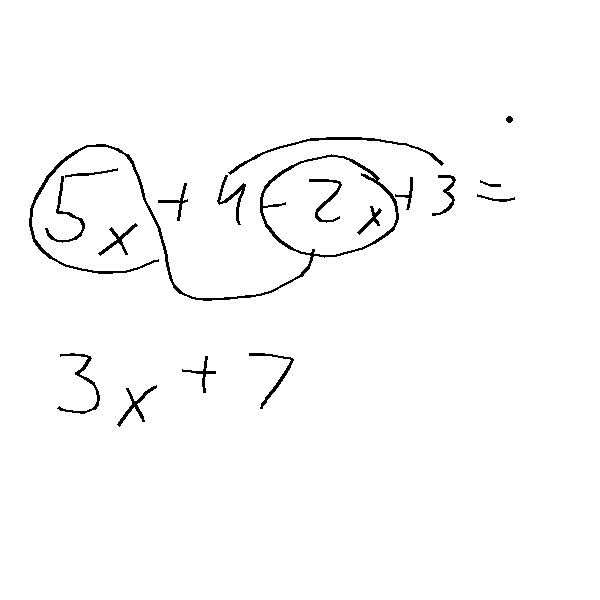 5x + 4 - 2x + 3 =
3x + 7